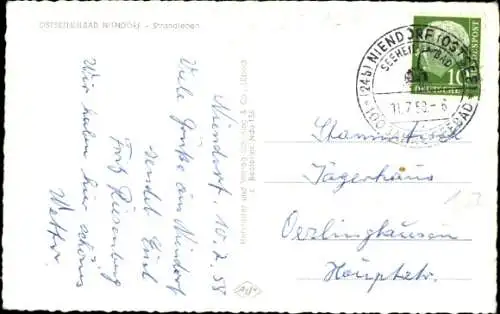 OSTSEEHEILBAD NIENDORF - Strandleben
Niendorf. 10.7.58
Viele Grüße aus Niendorf
sendet Euch
Fritz Riesenberg
Wir haben hier schönes
Wetter.
(24b) NIENDORF (OSTSEE)
SEEHEILBAD
11.7.58-6
100 JAHRE SEEBAD
10
DEUTSCHE BUNDESPOST
Stammtisch
Jägerhaus
Oerlinghausen
Hauptstr.